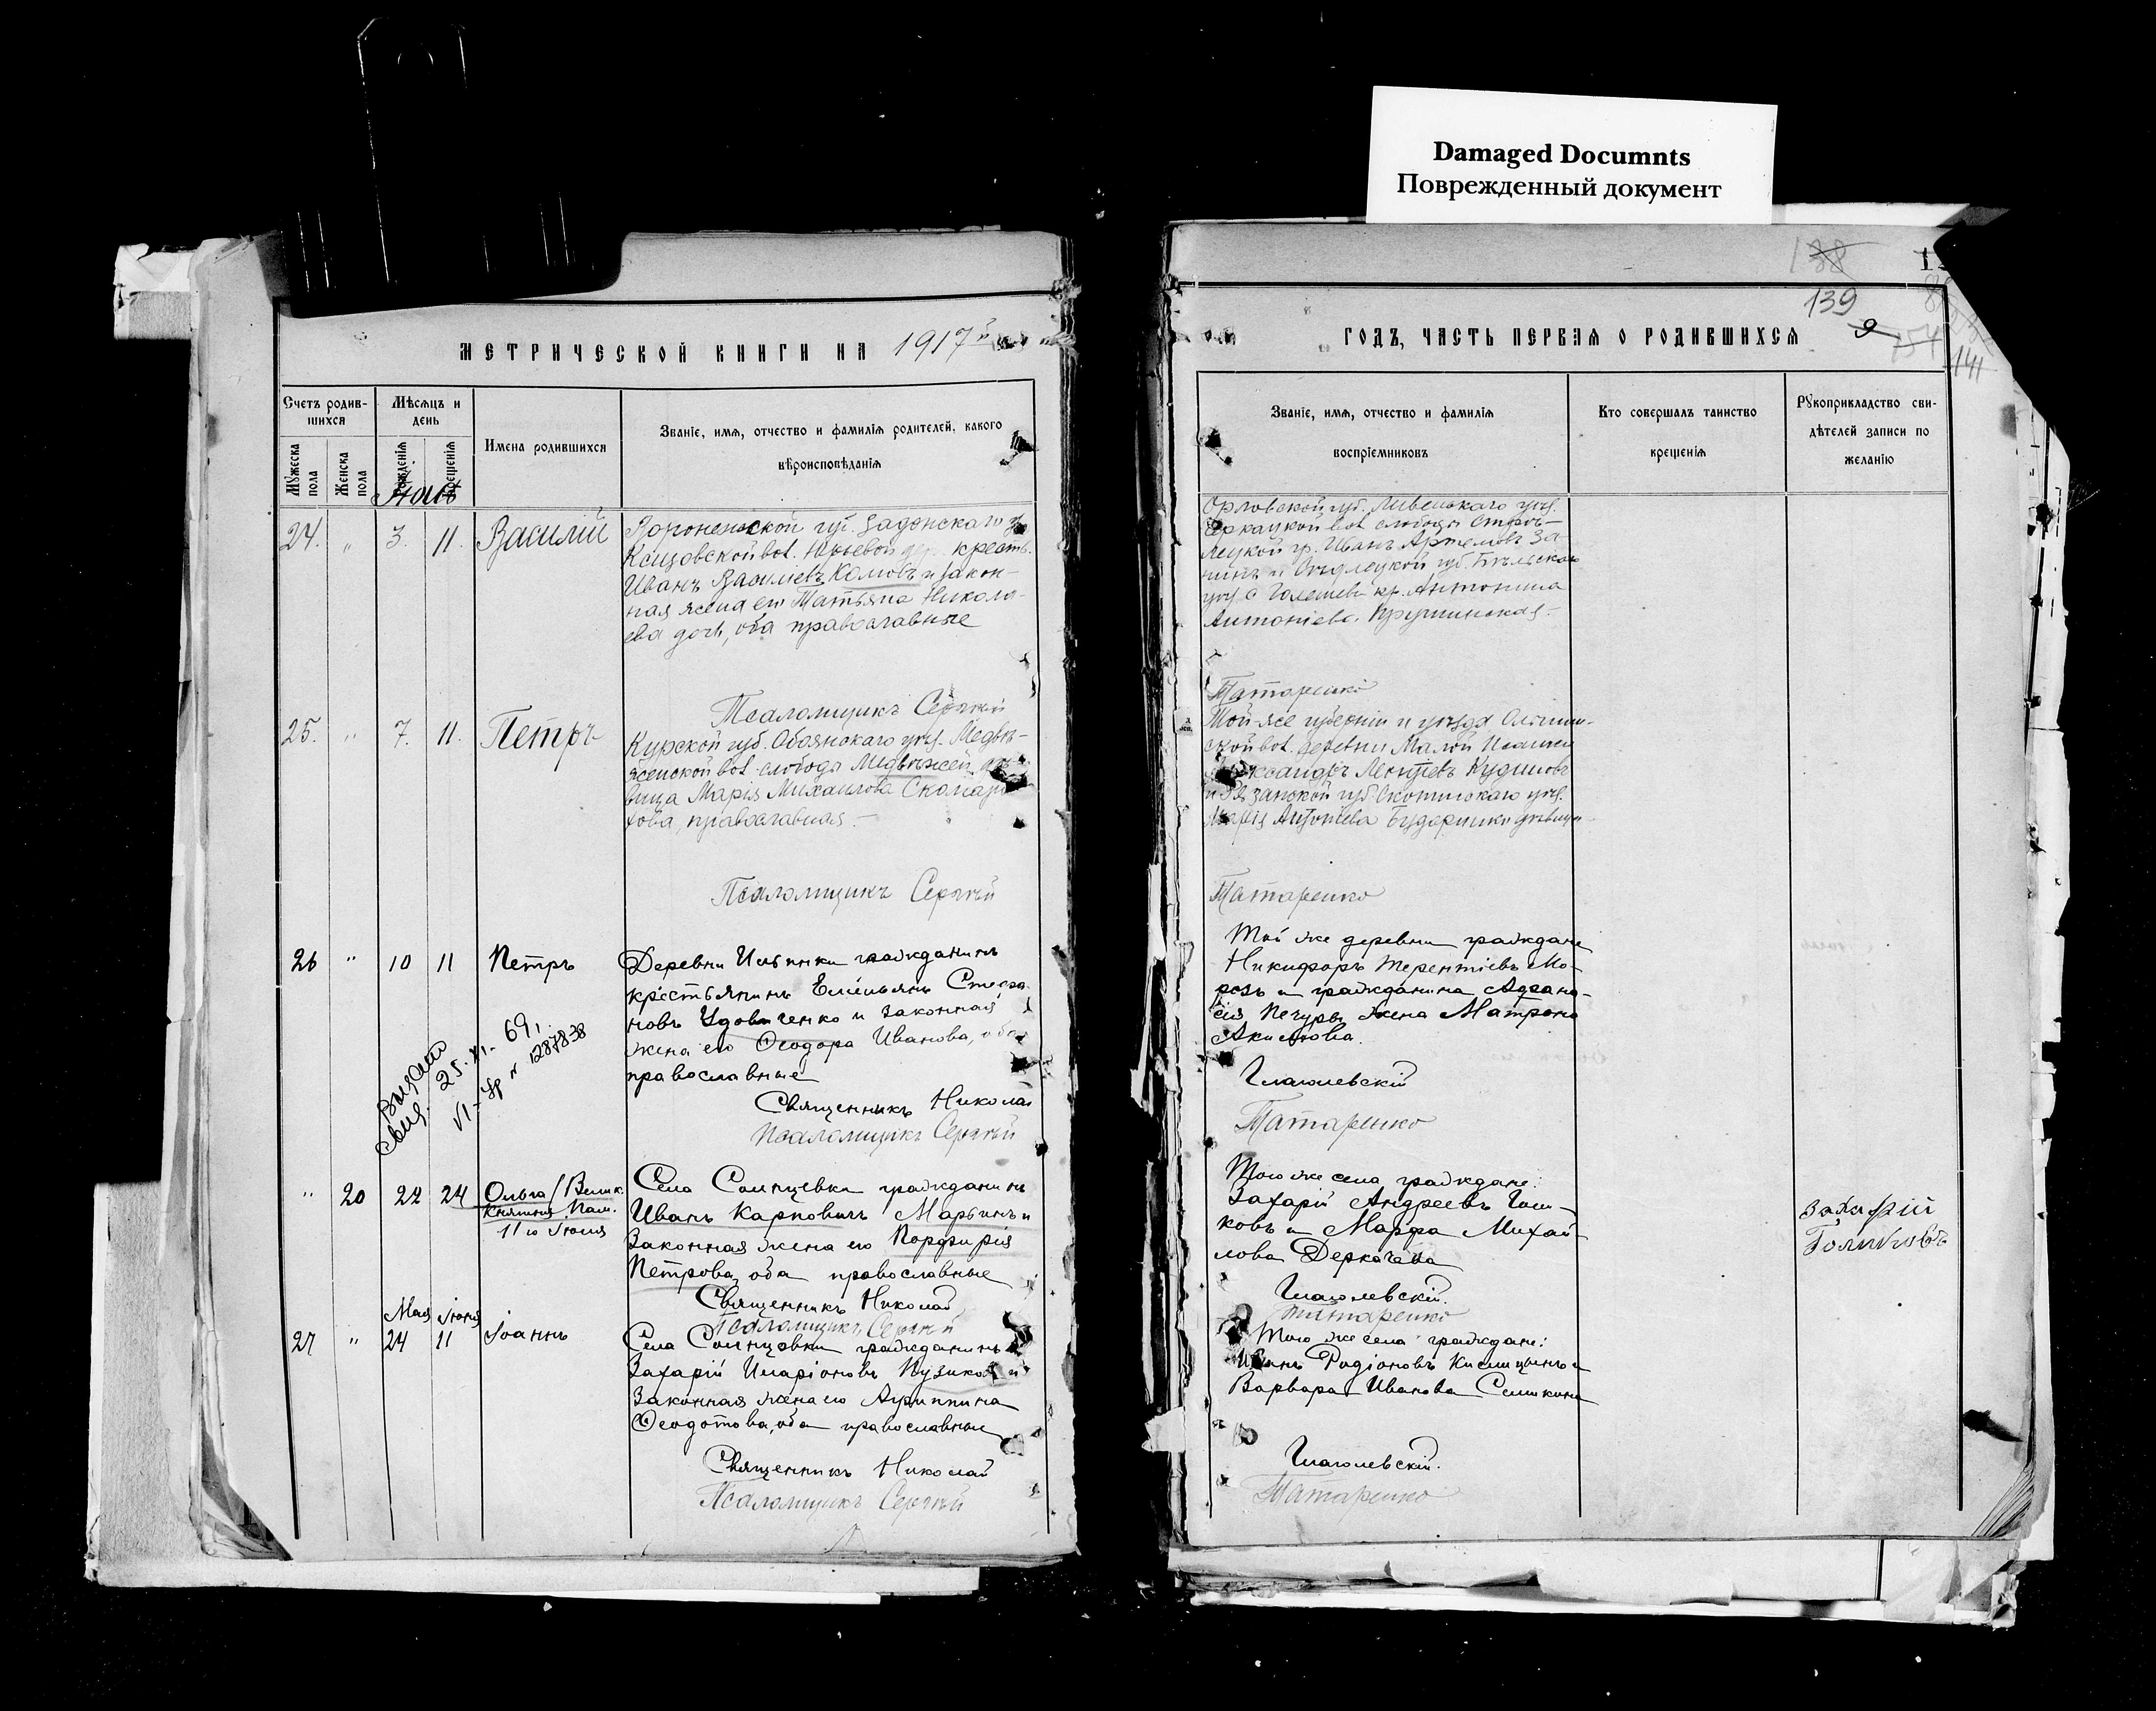 Damaged Documnts
Поврежденный документ
138
139
141
МЕТРИЧЕСКОЙ КНИГИ НА 1917й
ГОДЪ, ЧАСТЬ ПЕРВАЯ О РОДИВШИХСЯ
Счетъ родив-
шихся
Мужеска пола
Женска пола
Мѣсяцъ и
день
рожденія
крещенія
Имена родившихся
Званіе, имя, отчество и фамилія родителей, какого
вѣроисповѣданія
Званіе, имя, отчество и фамилія
воспріемниковъ
Кто совершалъ таинство
крещенія
Рукоприкладство сви-
дѣтелей записи по
желанію
24. " 3. 11. Василій
Воронежской губ. Задонскаго у
вол. Юрьевой дер. крест.
Иванъ Васильевъ Комовъ и закон-
ная жена его Татьяна Никола-
ева дочь, оба православные
Псаломщикъ Сергѣй
Орловской губ. Ливенскаго уѣз.
вол. слободы Стрѣ-
лецкой гр. Иванъ Артемовъ За-
и губ. Бѣльскаго
уѣз. с. кр. Антонина
Антоніева
Татаренко
25. " 7. 11. Петръ
Курской губ. Обоянскаго уѣз. Медвѣ-
женской вол. слободы Медвѣжей дѣ-
вица Марія Михаилова
православная.
Псаломщикъ Сергѣй
Той-же губерніи и уѣзда
ской вол. деревни Малой
Александръ Леонтіевъ Кудиновъ
и Рязанской губ. Скопинскаго уѣз.
Марія дѣвица
Татаренко
26 " 10 11 Петръ
Деревни Ильинки гражданинъ
крестьянинъ Емельянъ Стефа-
новъ Удовиченко и законная
жена его Ѳеодора Иванова, оба
православные
Священникъ Николай
Псаломщикъ Сергѣй
Той же деревни граждане
Никифоръ Терентіевъ Мо-
розъ и гражданина Афана-
сія Печуры жена Матрона
Акимова.
Глаголевскій
Татаренко
Выдано
свид. 25.XI-69г.
VI-ЯР № 1287838
" 20 22 24 Ольга (Велик.
Княгиня. Пам.
11го Іюля
Села Солнцевки гражданинъ
Иванъ Карповичъ Марьинъ и
Законная жена его Порфирія
Петрова, оба православные
Священникъ Николай
Псаломщикъ Сергѣй
Того же села граждане:
Захарій Андреевъ Голи-
ковъ и Марфа Михай-
лова Деркачева
Глаголевскій.
Татаренко
Захарій
Голиковъ
Мая Іюня
27 " 24 11 Іоаннъ
Села Солнцовки гражданинъ
Захарій Иларіоновъ Пузиковъ и
Законная жена его Агриппина
Ѳеодотова, оба православные
Священникъ Николай
Псаломщикъ Сергѣй
Того же села граждане:
Иванъ Родіоновъ Кислицынъ и
Варвара Иванова Семикина
Глаголевскій.
Татаренко